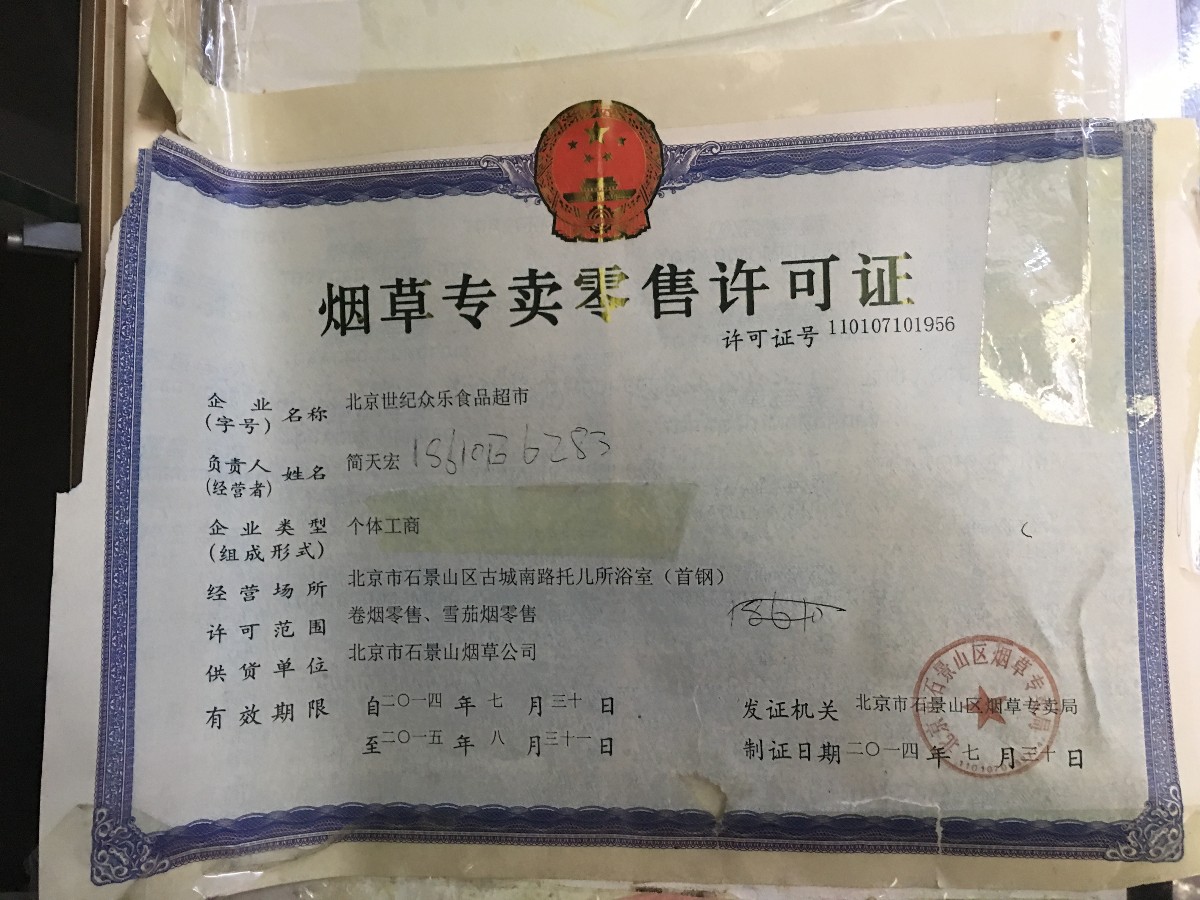 烟草专卖零售许可证
许可证号 110107101956
企业(字号)名称 北京世纪众乐食品超市
负责人(经营者)姓名 简天宏
企业类型(组成形式) 个体工商
经营场所 北京市石景山区古城南路托儿所浴室（首钢）
许可范围 卷烟零售、雪茄烟零售
供货单位 北京市石景山烟草公司
有效期限 自二〇一四年七月三十日
至二〇一五年八月三十一日
发证机关 北京市石景山区烟草专卖局
制证日期 二〇一四年七月三十日